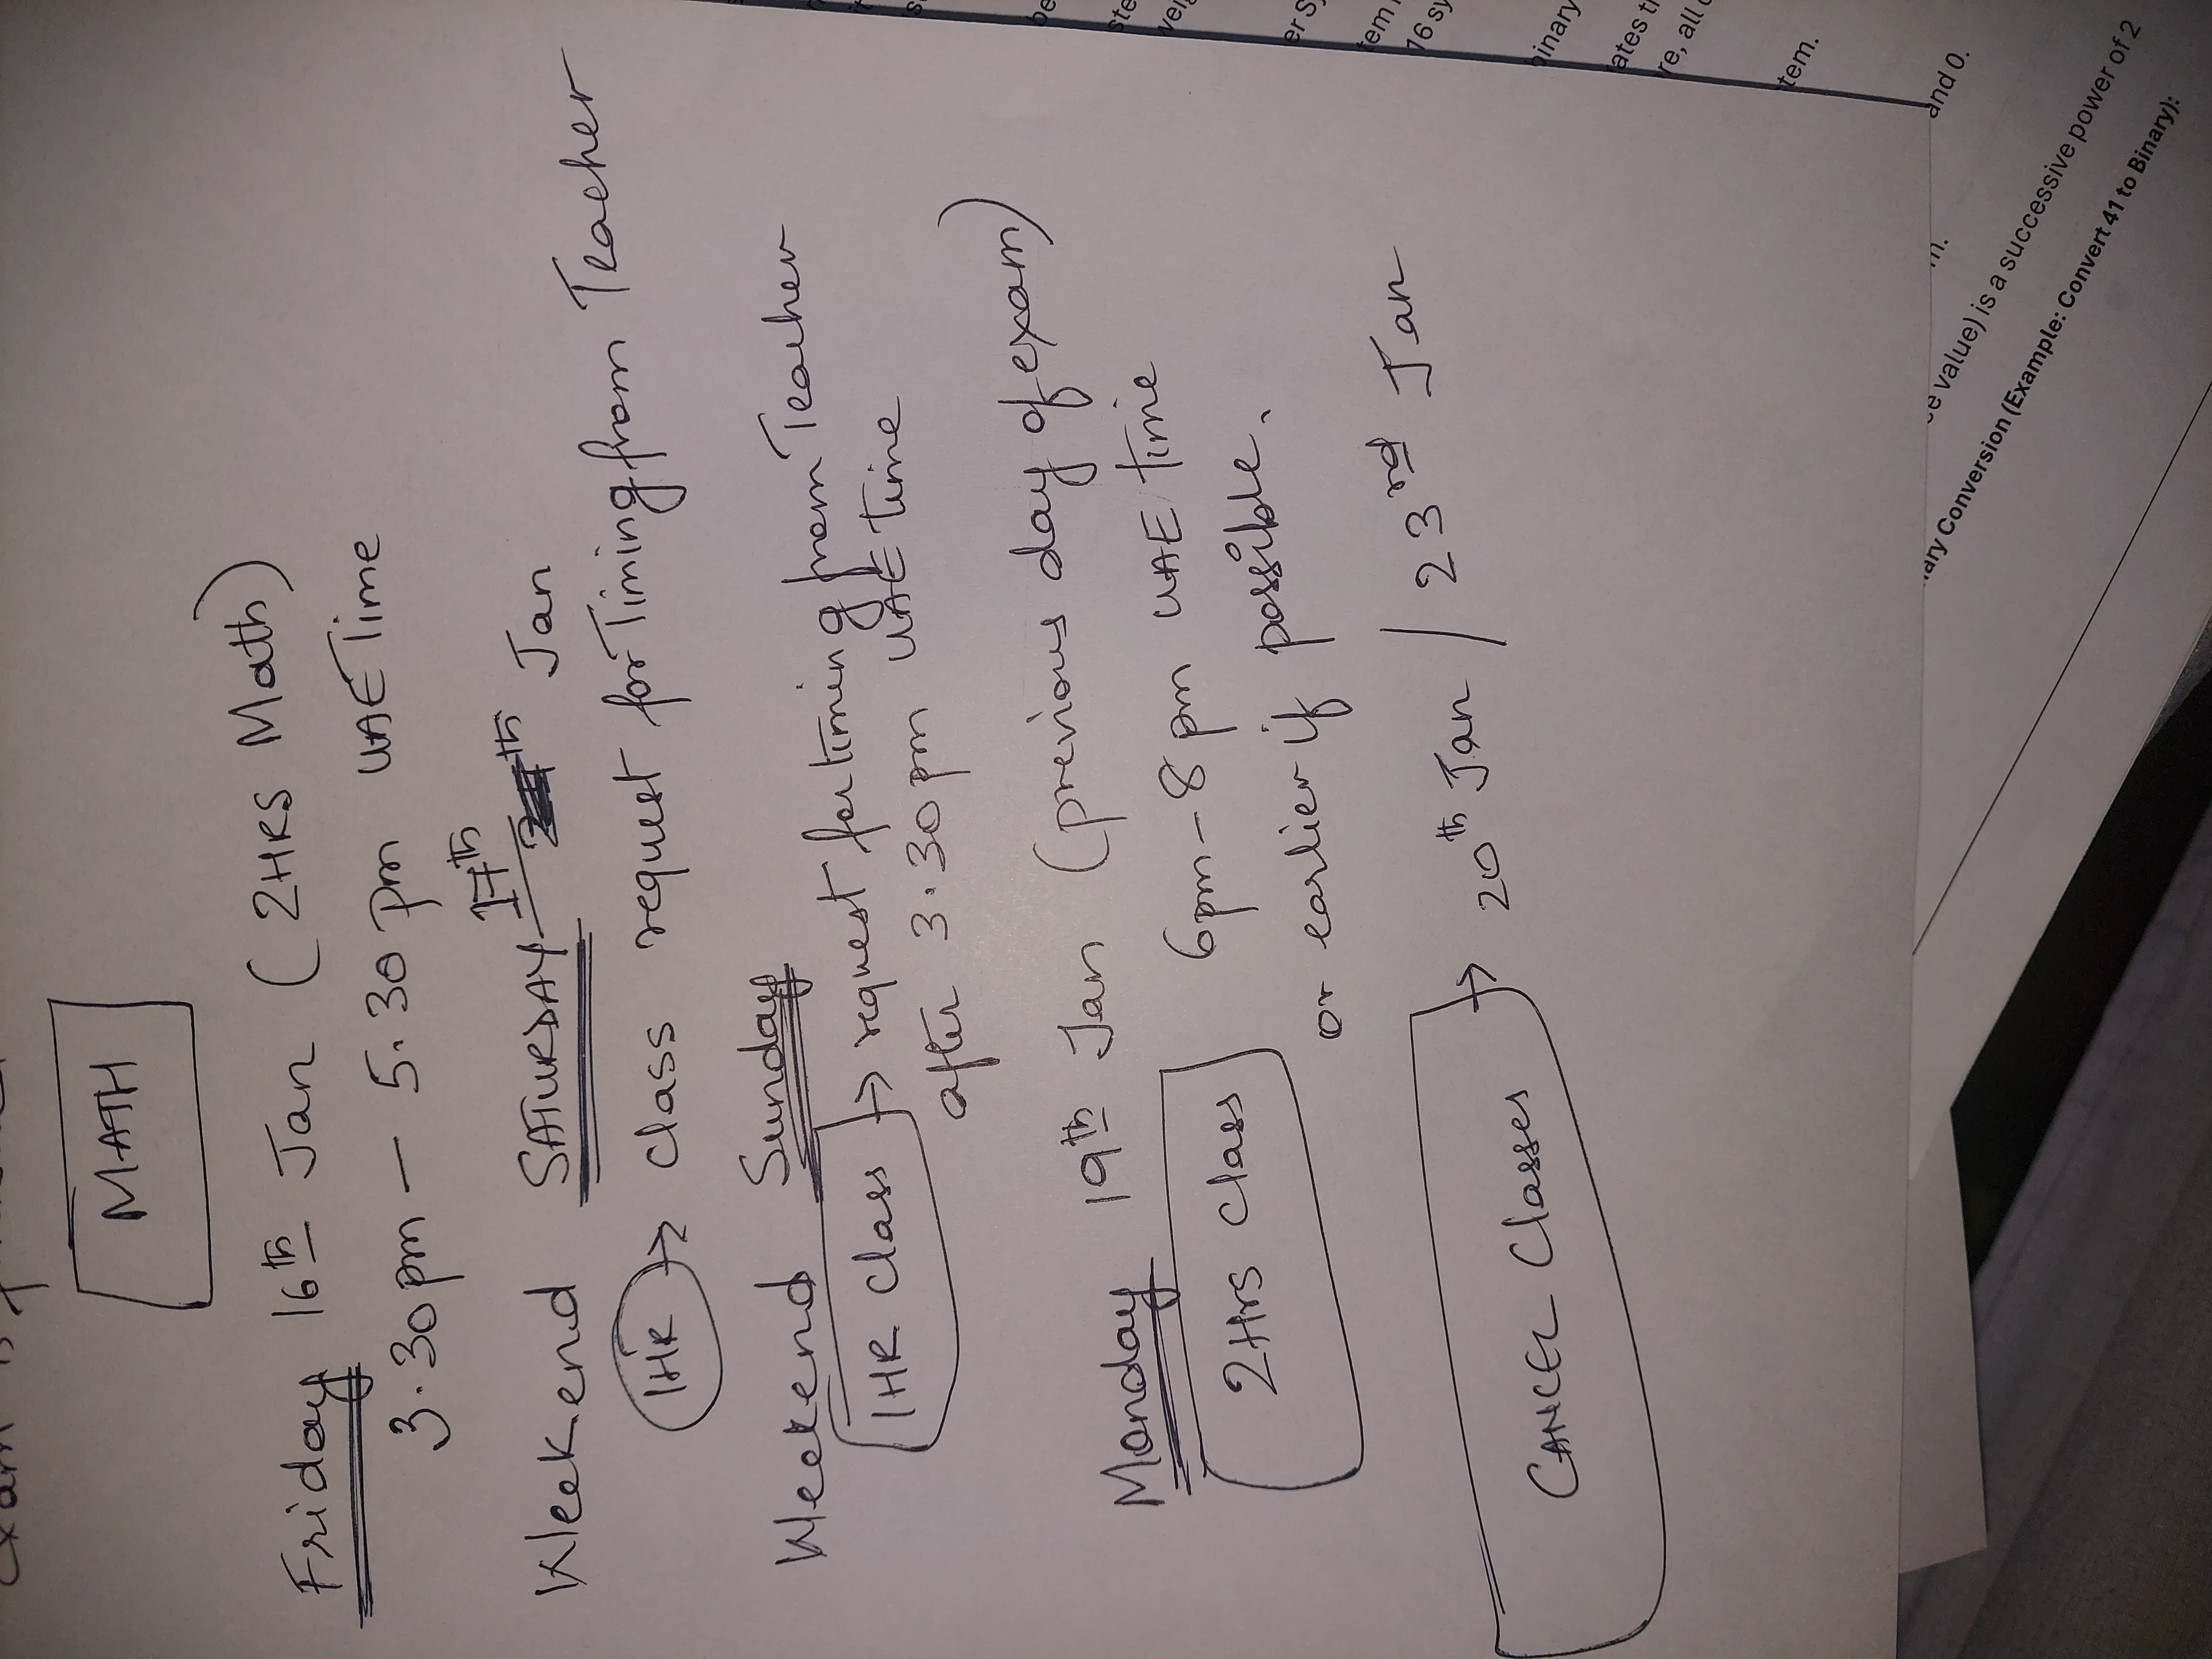 MATH
Friday 16th Jan (2HRS Math)
3.30pm - 5.30pm UAE Time
17th
Weekend SATURDAY th Jan
1HR → Class request for Timing from Teacher
Weekend Sunday
1HR Class → request for timing from Teacher
after 3.30pm UAE time
Monday 19th Jan (previous day of exam)
2Hrs Class 6pm-8pm UAE time
or earlier if possible.
CANCEL Classes → 20th Jan / 23rd Jan
binary
16 sy
re, all
tem.
and 0.
value) is a successive power of 2
Conversion (Example: Convert 41 to Binary):